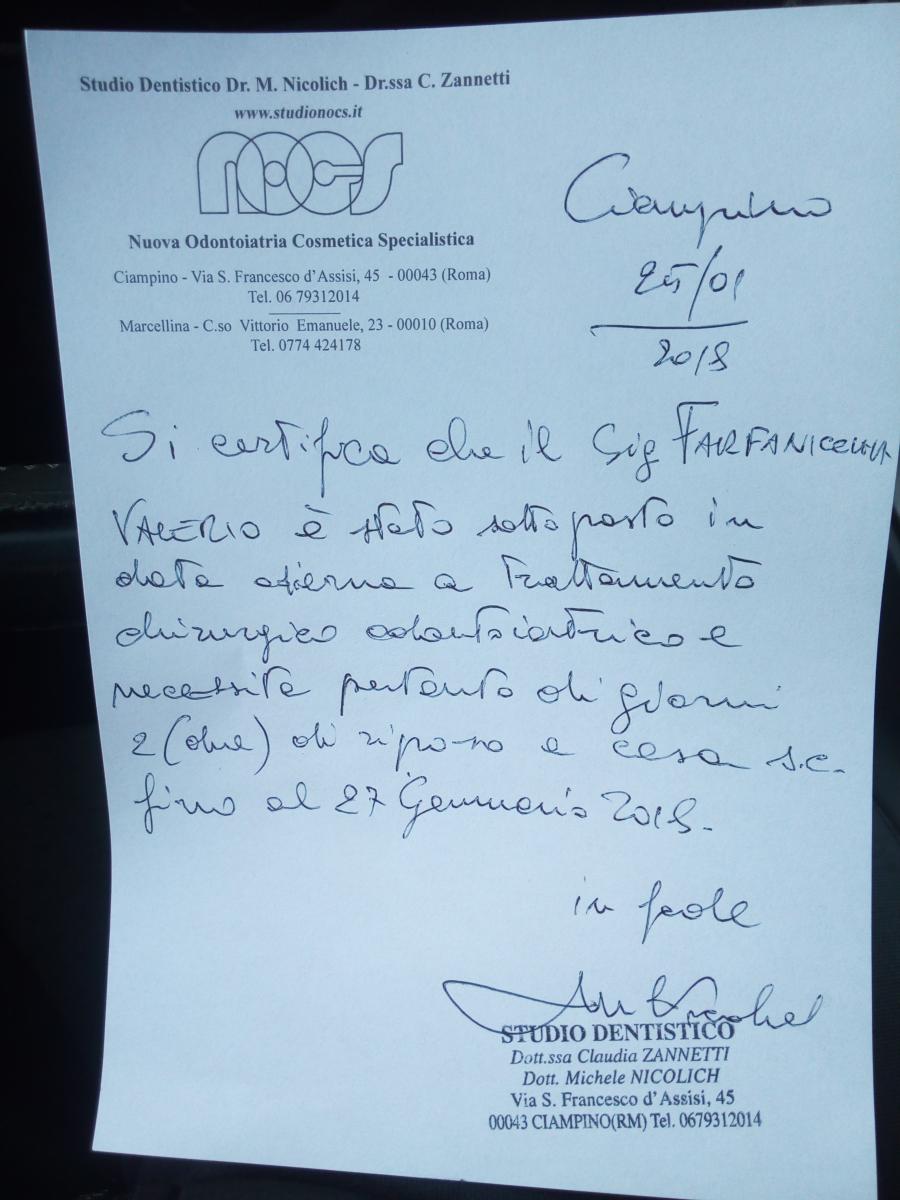 Studio Dentistico Dr. M. Nicolich - Dr.ssa C. Zannetti
www.studionocs.it
NOCS
Nuova Odontoiatria Cosmetica Specialistica
Ciampino - Via S. Francesco d'Assisi, 45 - 00043 (Roma)
Tel. 06 79312014
Marcellina - C.so Vittorio Emanuele, 23 - 00010 (Roma)
Tel. 0774 424178
Ciampino
25/01
2018
Si certifica che il Sig
VALERIO è stato sottoposto in
data odierna a trattamento
chirurgico odontoiatrico e
necessita pertanto di giorni
2 (due) di riposo a casa s.c.
fino al 27 Gennaio 2018.
in fede
STUDIO DENTISTICO
Dott.ssa Claudia ZANNETTI
Dott. Michele NICOLICH
Via S. Francesco d'Assisi, 45
00043 CIAMPINO(RM) Tel. 0679312014